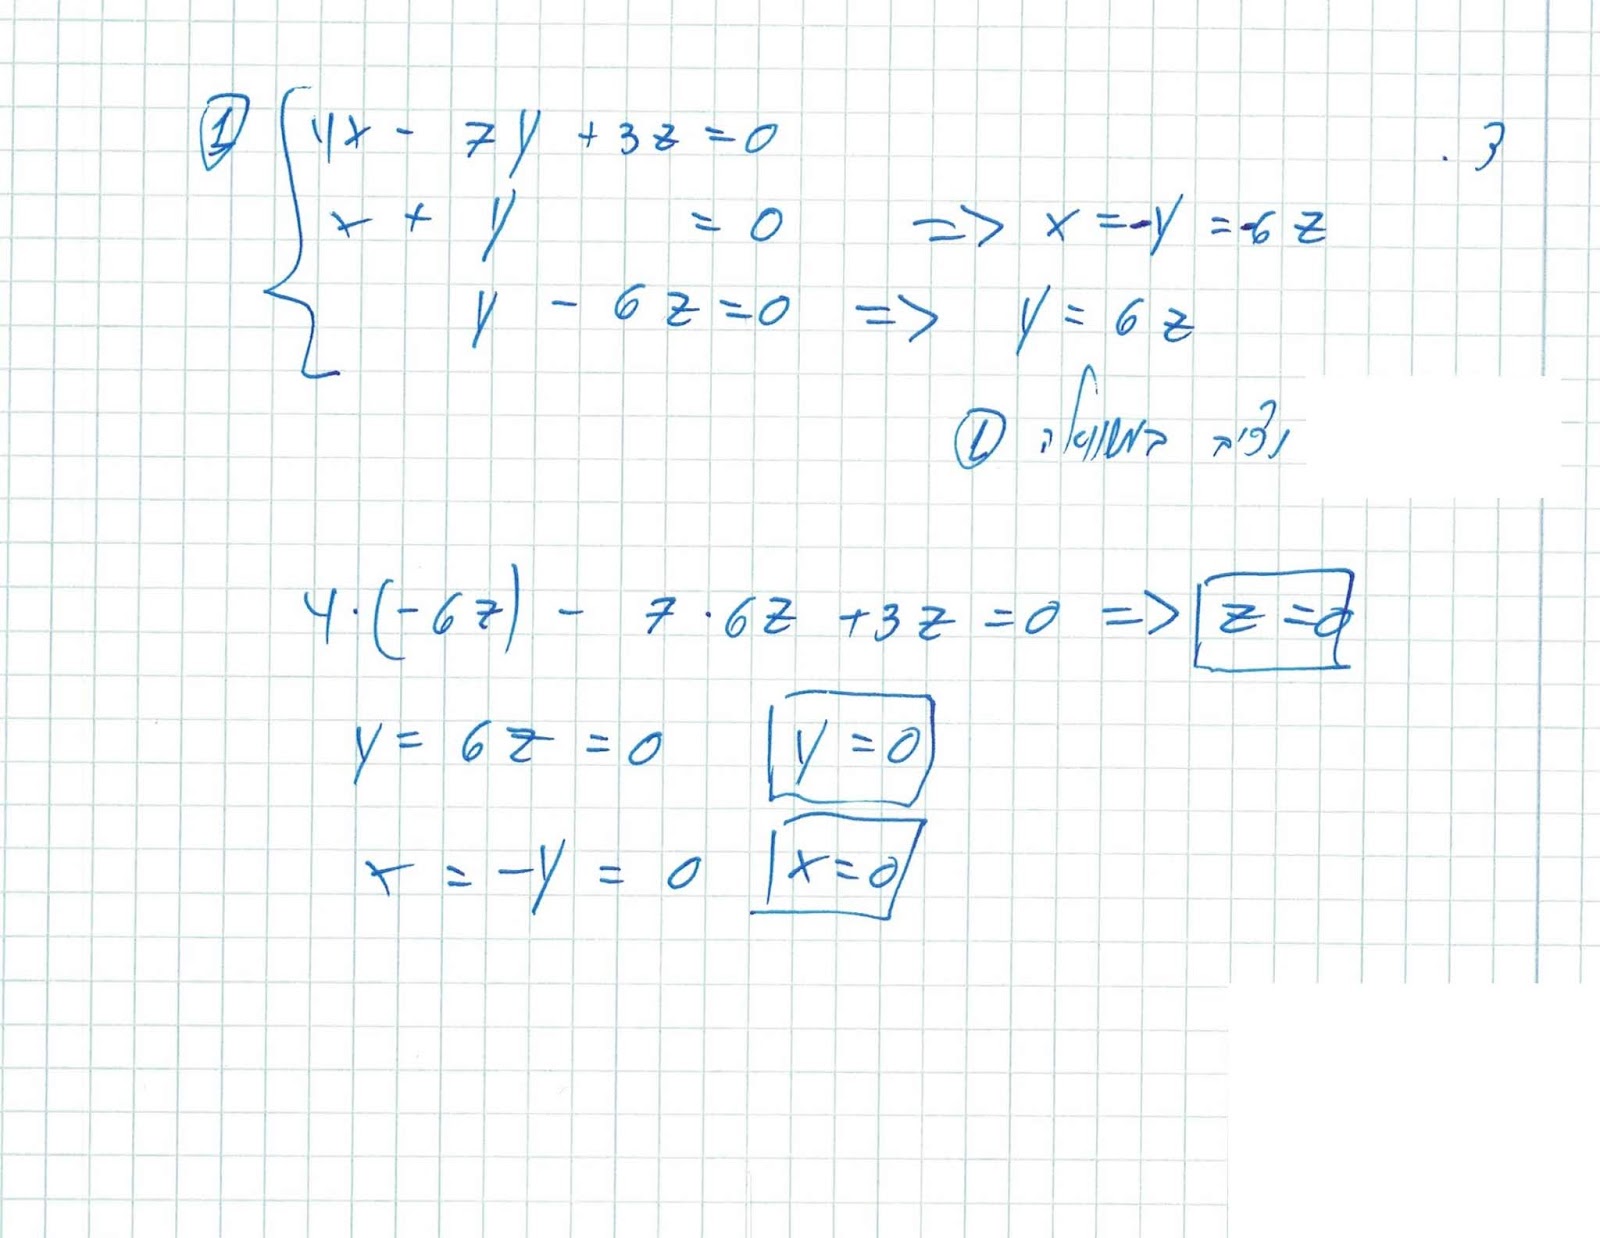 3.
① 4x - 7y + 3z = 0
x + y = 0 => x = -y = -6z
y - 6z = 0 => y = 6z
נציב במשוואה ①
4·(-6z) - 7·6z + 3z = 0 => z = 0
y = 6z = 0 y = 0
x = -y = 0 x = 0